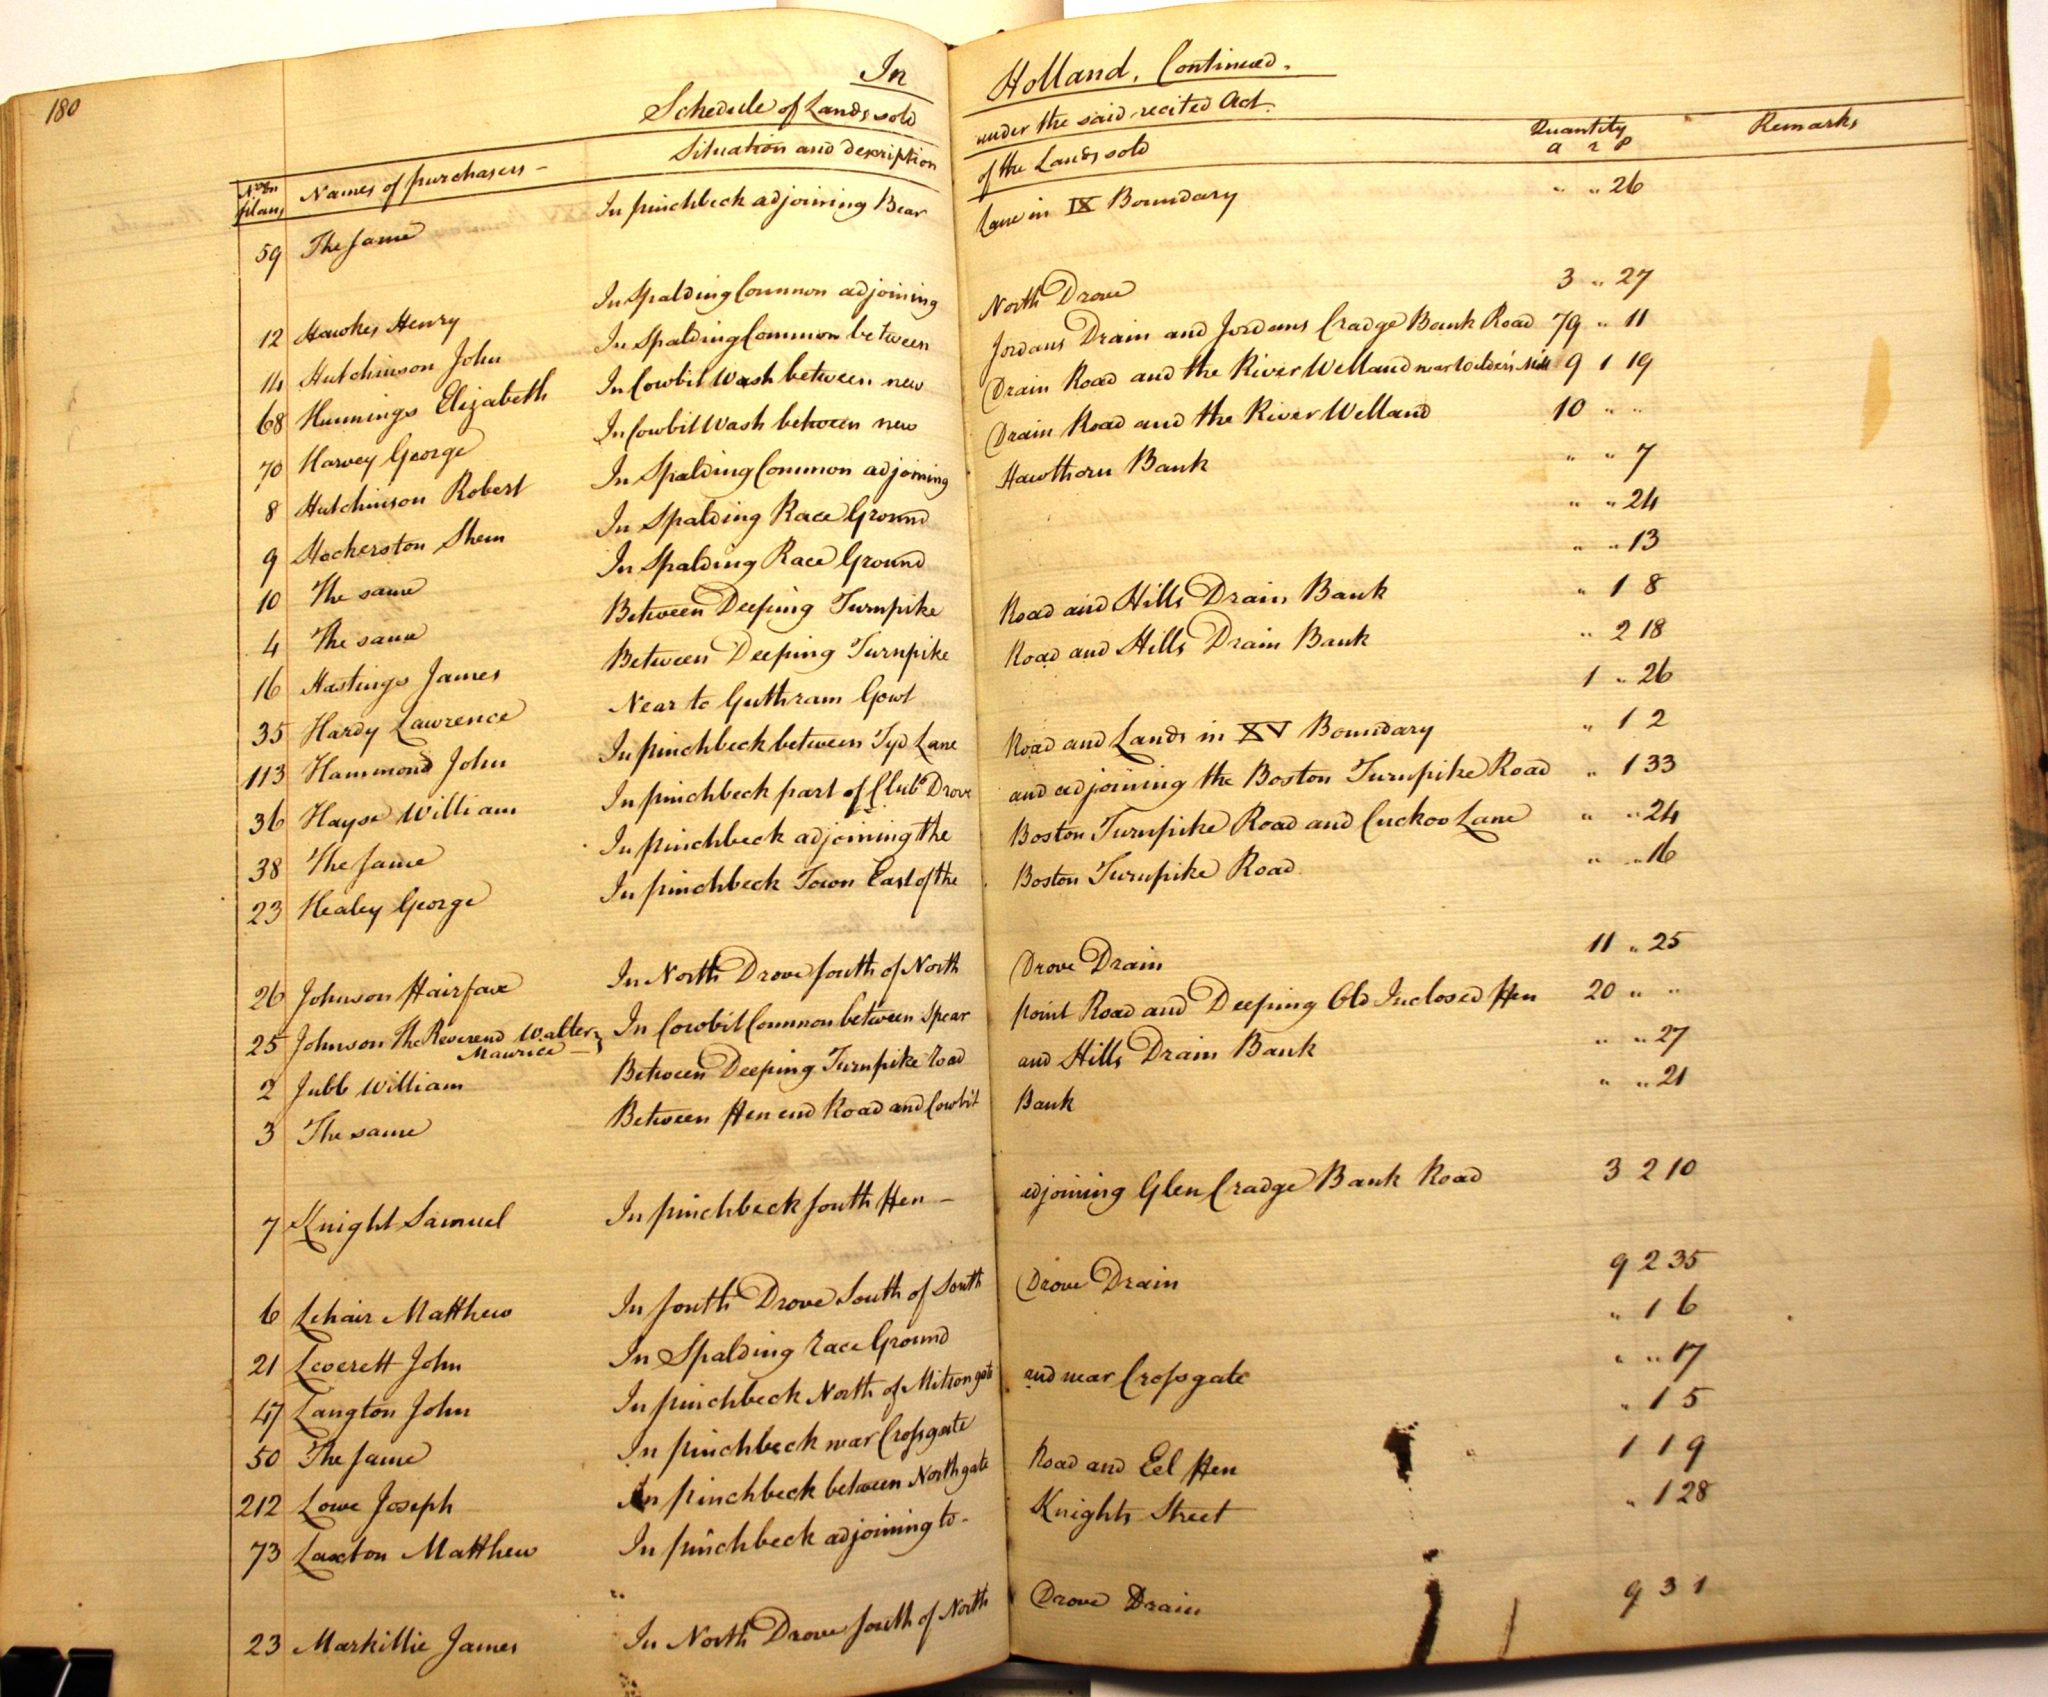 180
In Holland, Continued.
Schedule of Lands sold under the said recited Act.
Nos. on plans Names of purchasers – Situation and description of the Lands sold Quantity a r p Remarks
59 The same In pinchbeck adjoining Bear Lane in IX Boundary " " 26
12 Hawkes Henry In Spalding Common adjoining North Drove 3 " 27
14 Hutchinson John In Spalding Common between Jordans Drain and Jordans Cradge Bank Road 79 " 11
68 Hunnings Elizabeth In Cowbit Wash between new Drain Road and the River Welland near Wilders Mill 9 1 19
70 Harvey George In Cowbit Wash between new Drain Road and the River Welland 10 " "
8 Hutchinson Robert In Spalding Common adjoining Hawthorn Bank " " 7
9 Hockerston Shem In Spalding Race Ground " " 24
10 The same In Spalding Race Ground " " 13
4 The same Between Deeping Turnpike Road and Hills Drain Bank " 1 8
16 Hastings James Between Deeping Turnpike Road and Hills Drain Bank " 2 18
35 Hardy Lawrence Near to Guthram Gowt 1 " 26
113 Hammond John In pinchbeck between Tyd Lane Road and Lands in XV Boundary " 1 2
36 Hayse William In pinchbeck part of Club Drove and adjoining the Boston Turnpike Road " 1 33
38 The same In pinchbeck adjoining the Boston Turnpike Road and Cuckoo Lane " " 24
23 Healey George In pinchbeck Town East of the Boston Turnpike Road " " 16
26 Johnson Fairfax In North Drove South of North Drove Drain 11 " 25
25 Johnson The Reverend Walter Maurice – In Cowbit Common between Spear point Road and Deeping Old Inclosed Fen 20 " "
2 Jubb William Between Deeping Turnpike road and Hills Drain Bank " " 27
3 The same Between Fen end Road and Cowbit Bank " " 21
7 Knight Samuel In pinchbeck South Fen – adjoining Glen Cradge Bank Road 3 2 10
6 Lehair Matthew In South Drove South of South Drove Drain 9 2 35
21 Leverett John In Spalding race Ground " 1 6
47 Langton John In pinchbeck North of Milton gate and near Crossgate " " 17
50 The same In pinchbeck near Crossgate " 1 5
212 Lowe Joseph In pinchbeck between Northgate Road and Eel Fen 1 1 9
73 Laxton Matthew In pinchbeck adjoining to – Knights Street " 1 28
23 Markillie James In North Drove South of North Drove Drain 9 3 1